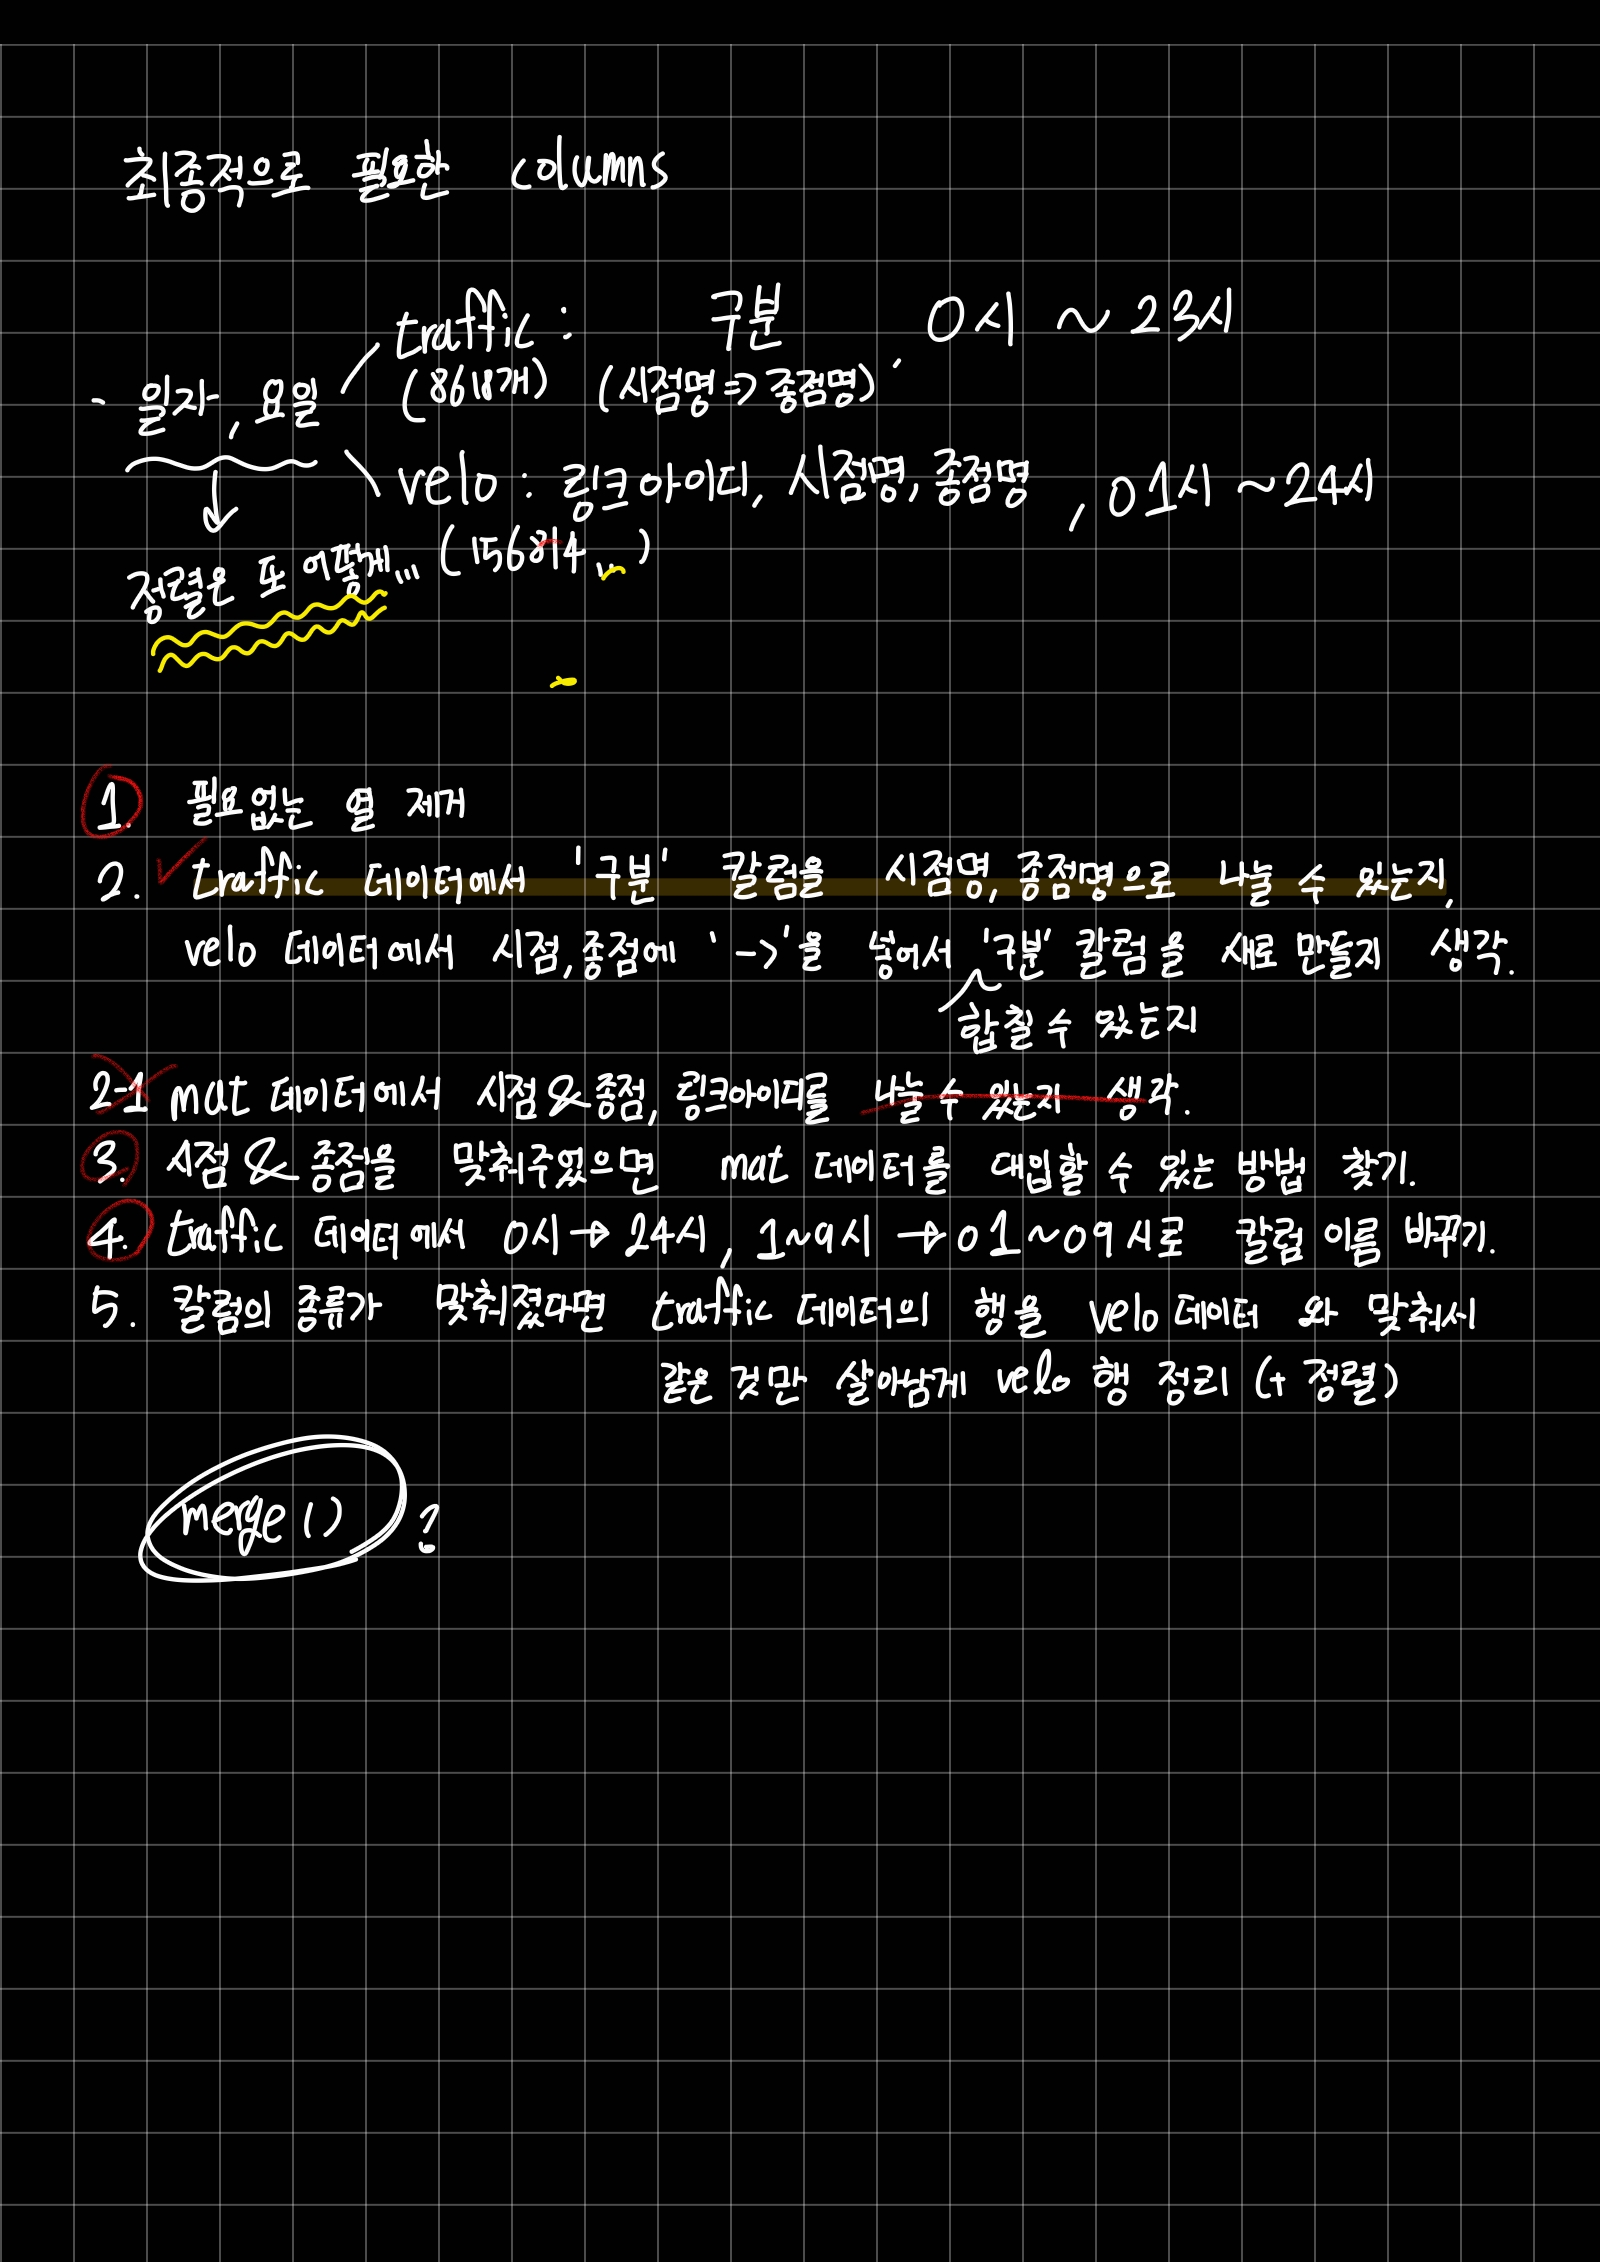 최종적으로 필요한 columns
traffic : 구분 0시 ~ 23시
(8618개) (시점명=>종점명)
- 일자, 요일
velo : 링크아이디, 시점명, 종점명, 01시 ~24시
(156814...)
정렬은 또 어떻게...
1. 필요없는 열 제거
2. traffic 데이터에서 '구분' 칼럼을 시점명, 종점명으로 나눌 수 있는지,
velo 데이터에서 시점, 종점에 '->'을 넣어서 '구분' 칼럼을 새로 만들지 생각.
합칠 수 있는지
2-1 mat 데이터에서 시점&종점, 링크아이디를 나눌 수 있는지 생각.
3. 시점&종점을 맞춰주었으면 mat 데이터를 대입할 수 있는 방법 찾기.
4. traffic 데이터에서 0시→24시, 1~9시→01~09시로 칼럼 이름 바꾸기.
5. 칼럼의 종류가 맞춰졌다면 traffic 데이터의 행을 velo 데이터 와 맞춰서
같은 것만 살아남게 velo 행 정리 (+ 정렬)
merge() ?